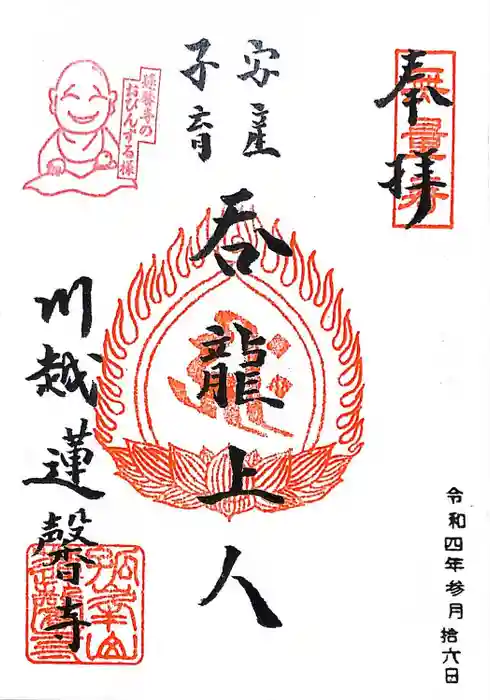 奉拝
無量寿
安産
子育
呑龍上人
蓮馨寺の
おびんずる様
川越蓮馨寺
令和四年参月拾六日